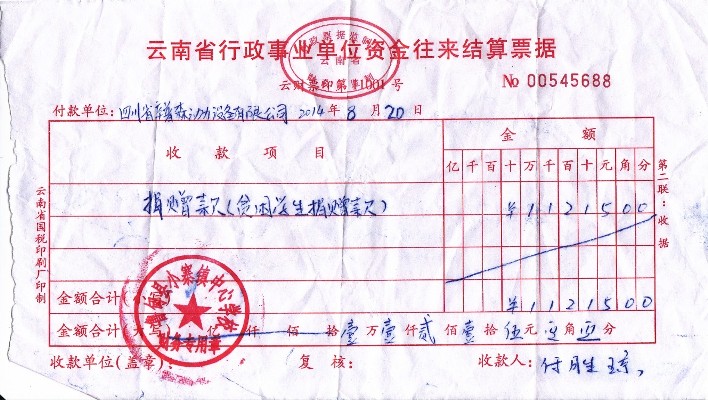 云南省行政事业单位资金往来结算票据
云财票印第 1001 号
No 00545688
付款单位: 四川省 森动力设备有限公司 2014 年 8 月 20 日
收款项目
金额
亿 千 百 十 万 千 百 十 元 角 分
捐赠款(贫困学生捐赠款)
¥ 1 1 2 1 5 0 0
金额合计(
¥ 1 1 2 1 5 0 0
金额合计(大写) 亿 仟 佰 拾 壹 万 壹 仟 贰 佰 壹 拾 伍 元 角 分
收款单位(盖章):
复核:
收款人: 付
云南省国税印刷厂印制
第二联:收据
小寨镇中心学校